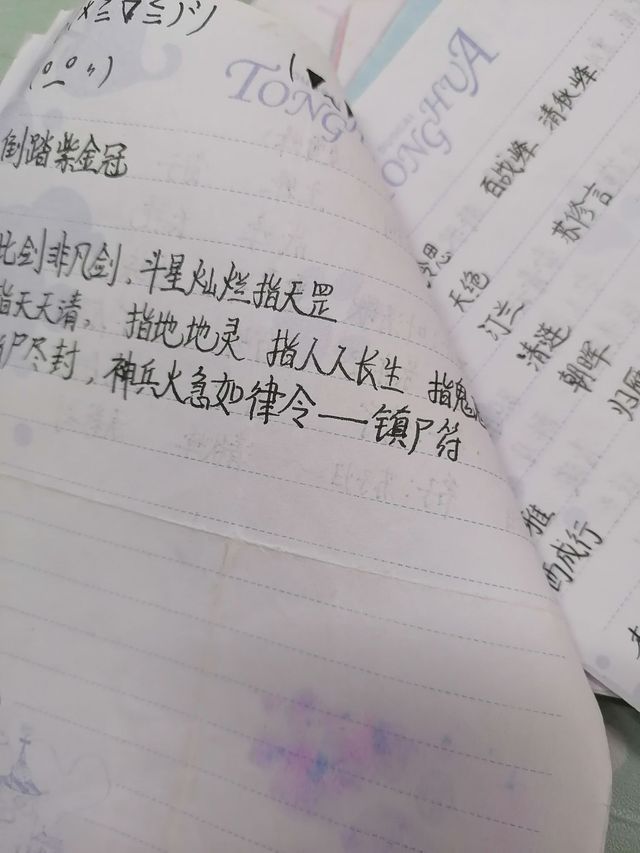 TONG
倒踏紫金冠
此剑非凡剑,斗星灿烂指天罡
指天天清, 指地地灵 指人人长生 指鬼
尸尽封,神兵火急如律令——镇尸符
TONGHUA
百战峰 清秋峰
思
天绝 苏修言
汀兰
清涟
朝晖
归雁
雅
西成行